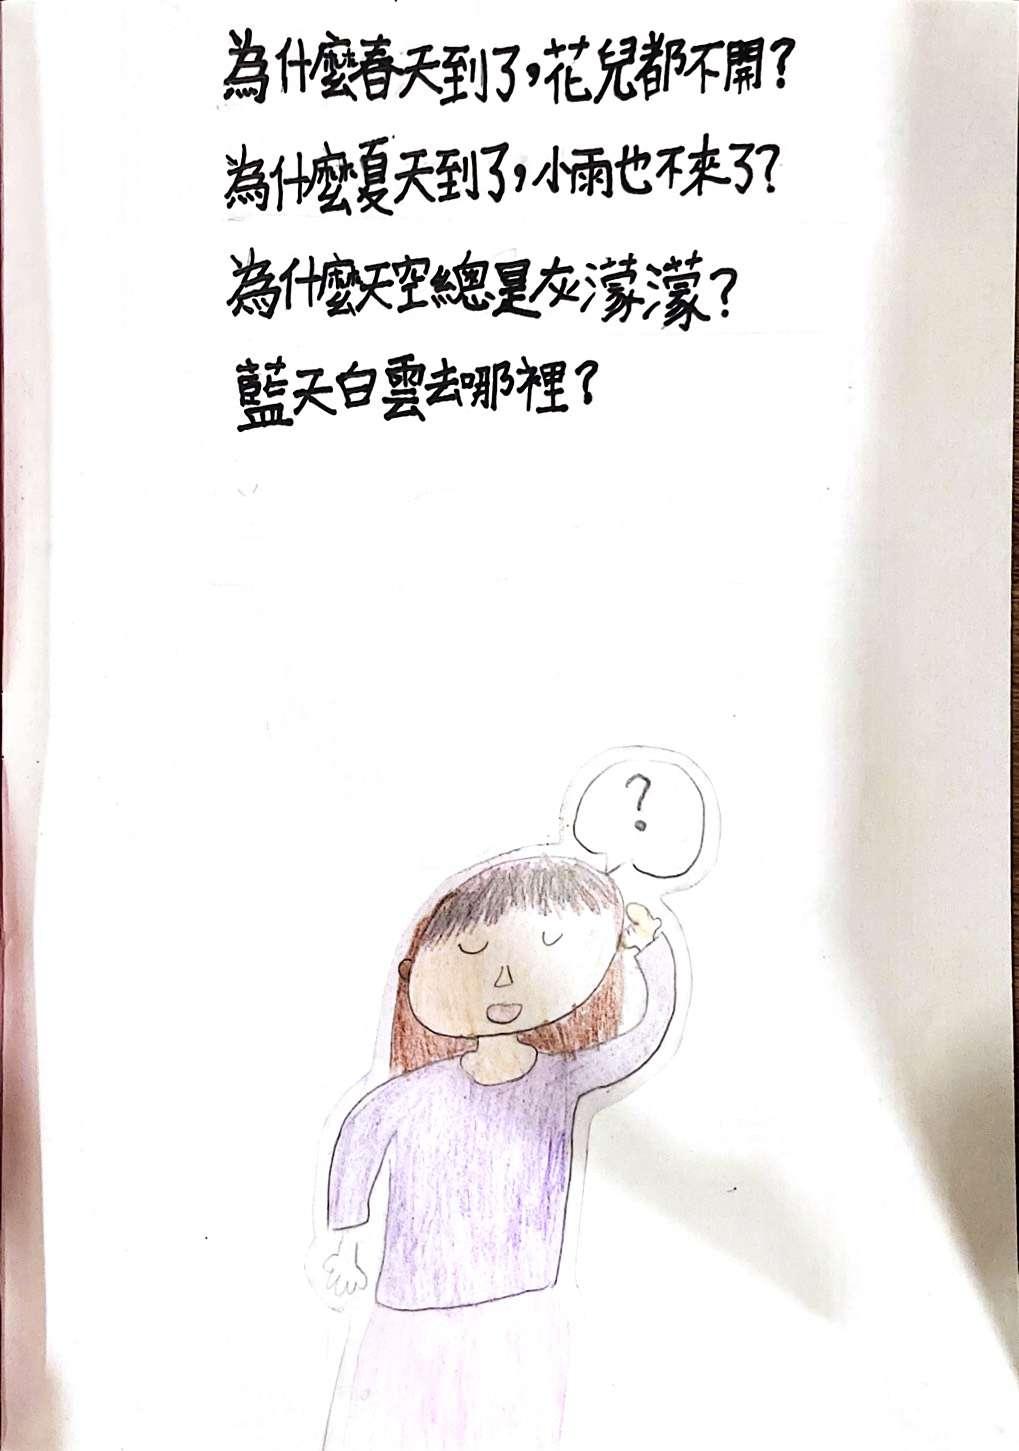 為什麼春天到了,花兒都不開?
為什麼夏天到了,小雨也不來了?
為什麼天空總是灰濛濛?
藍天白雲去哪裡?
?